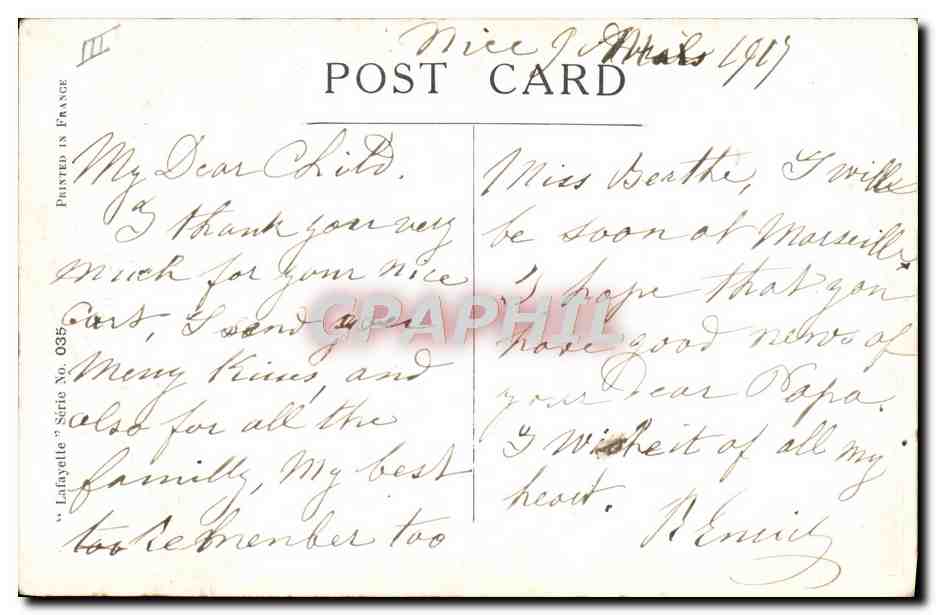 III
Nice 9 Mars 1917
POST CARD
PRINTED IN FRANCE
" Lafayette " Série No. 035
My Dear Child.
I thank you very
much for your nice
Cart, I send you
Meny Kises, and
also for all the
familly, My best
too Remenber too
Miss Berthe, I will
be soon at Marseille.
I hope that you
have good news of
your Dear Papa.
I wishe it of all my
heart.
CPAPHIL